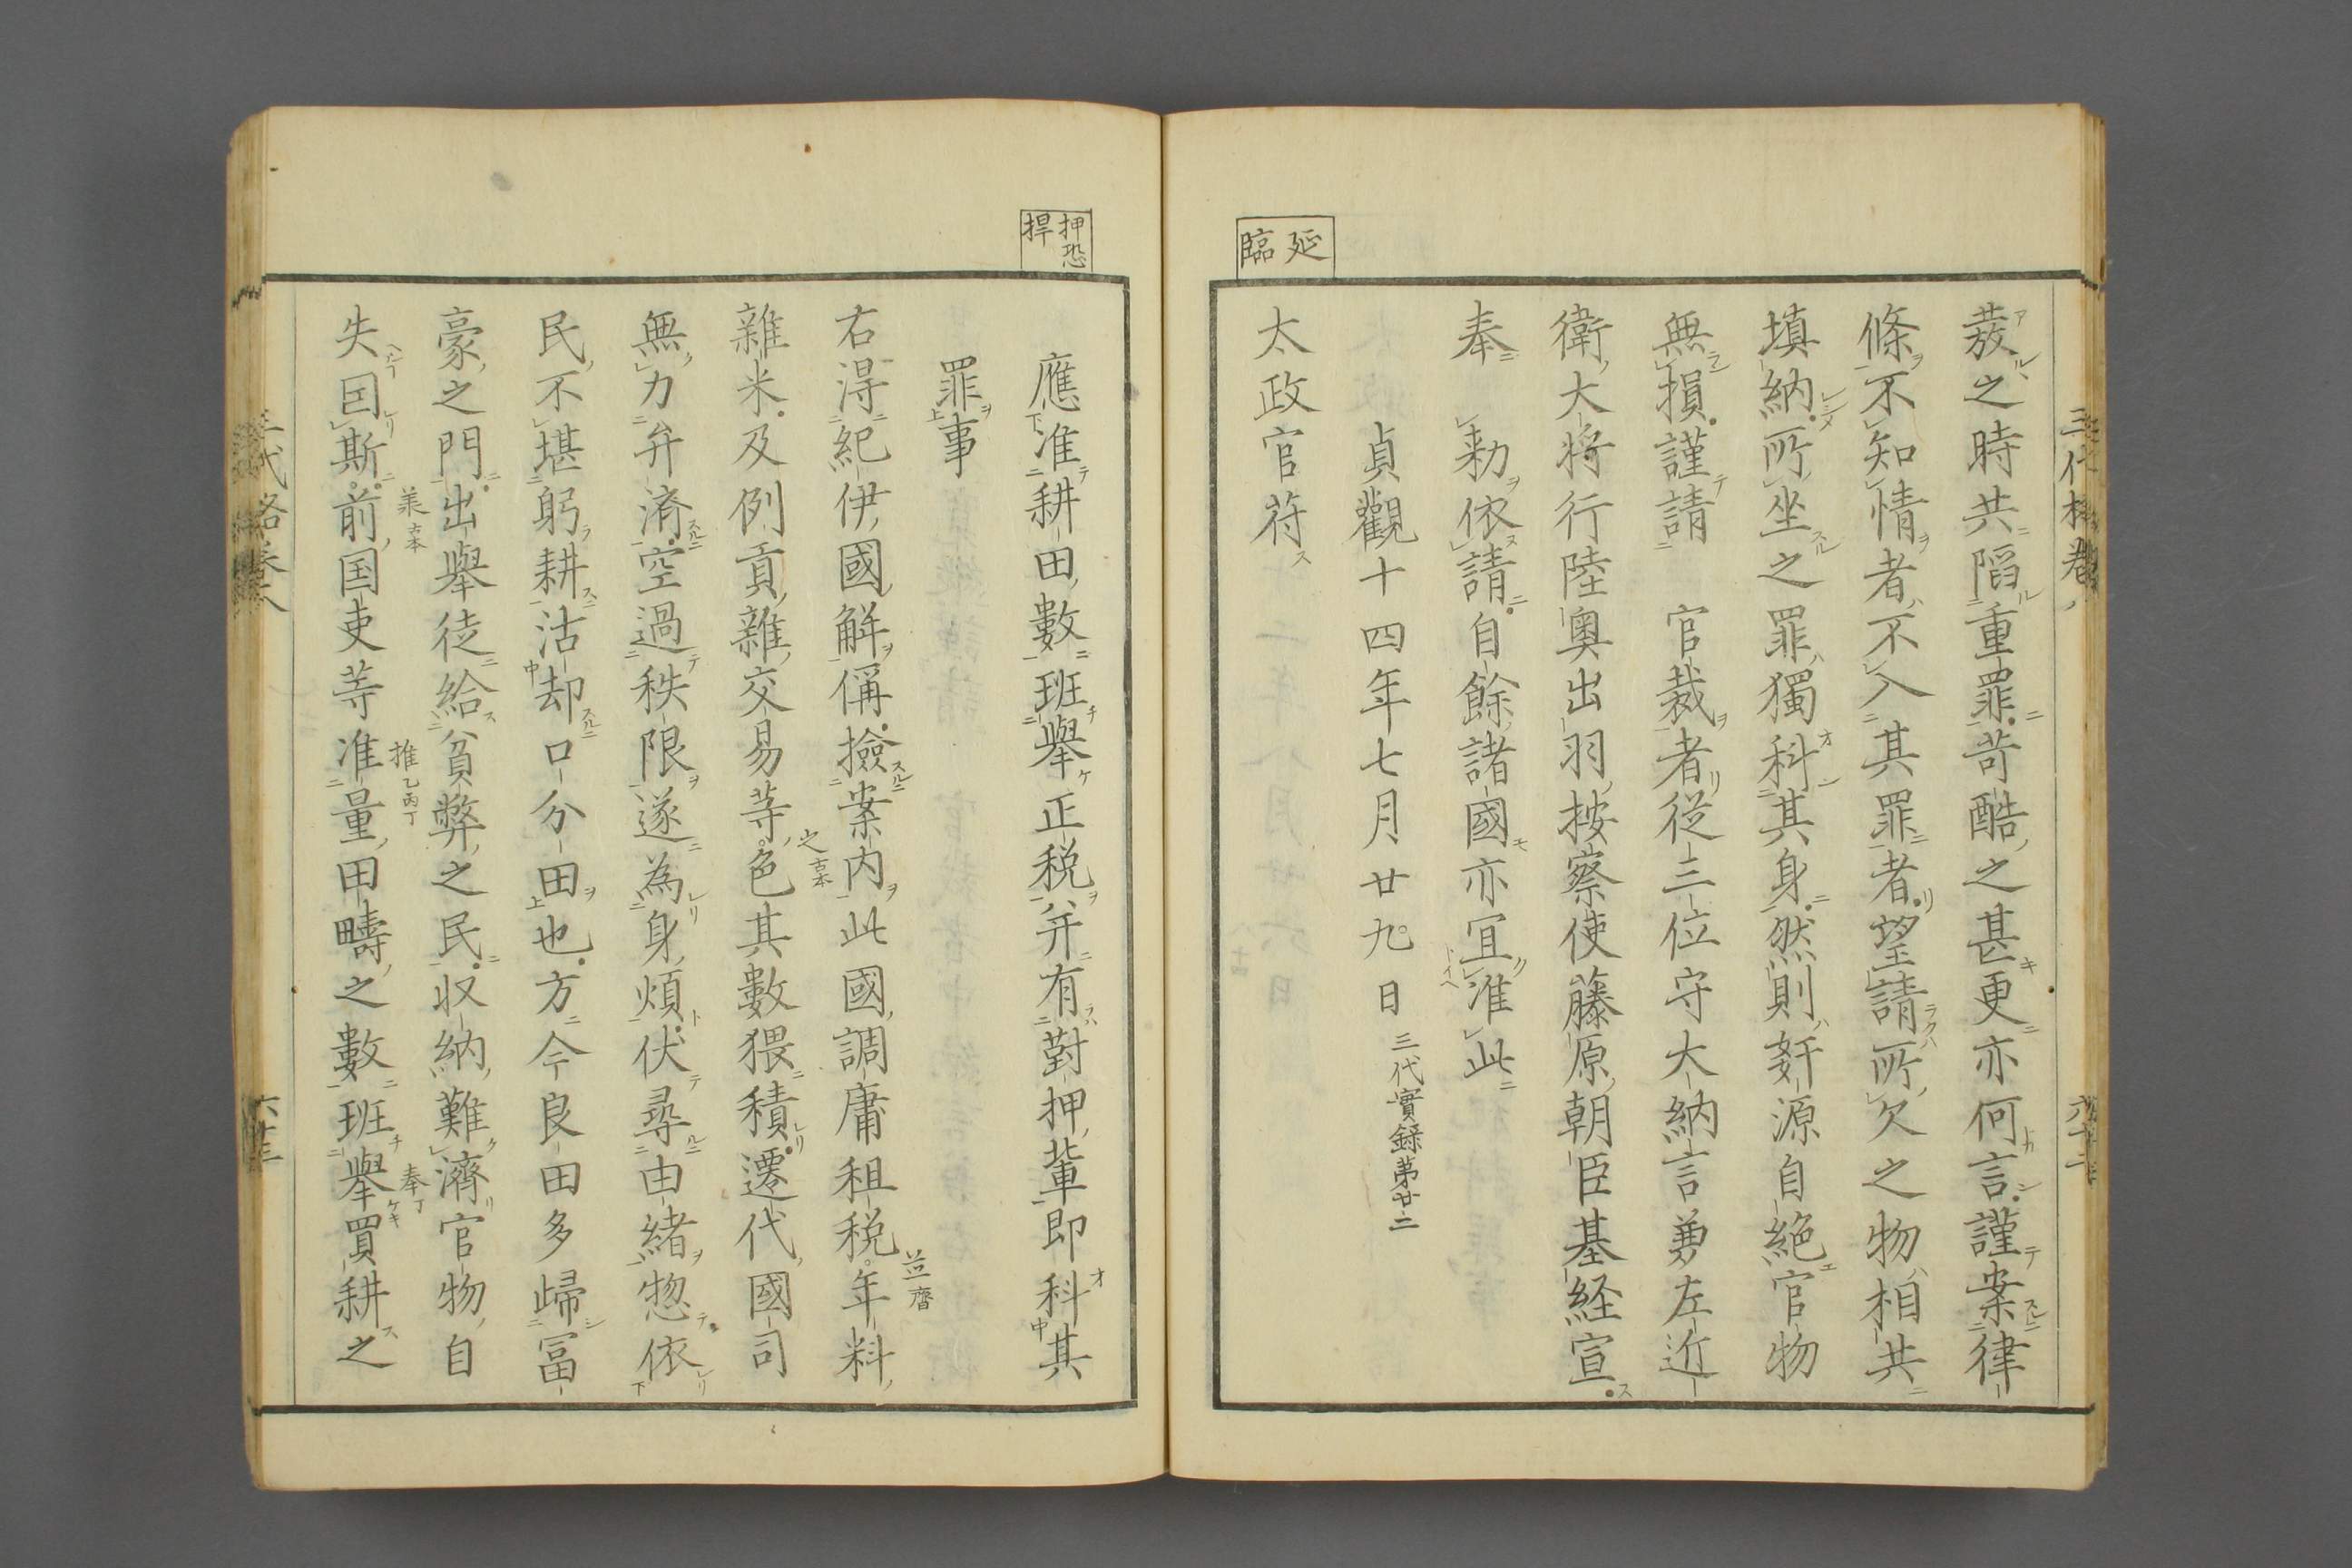 延
臨
蕟之時共陷重罪苛酷之甚更亦何言謹案律
條不知情者不入其罪者望請所欠之物相共
填納所坐之罪獨科其身然則奸源自絶官物
無損謹請　官裁者從三位守大納言兼左近
衛大将行陸奥出羽按察使藤原朝臣基経宣
奉　勅依請自餘諸國亦冝准此
貞觀十四年七月廿九日 三代實録第廿二
太政官符
押恐
捍
應准耕田數班舉正税并有對押輩即科其
罪事
右得紀伊國解偁撿案内此國調庸租税年料
並齊
雜米及例貢雜交易等色其數猥積遷代國司
之古本
無力弁済空過秩限遂為身煩伏尋由緒惣依
民不堪躬耕沽却口分田也方今良田多歸冨
豪之門出舉徒給貧弊之民収納難濟官物自
失囯斯前国吏等准量田疇之數班舉買耕之
羕古本
推乙丙丁
奉丁
三代格巻八